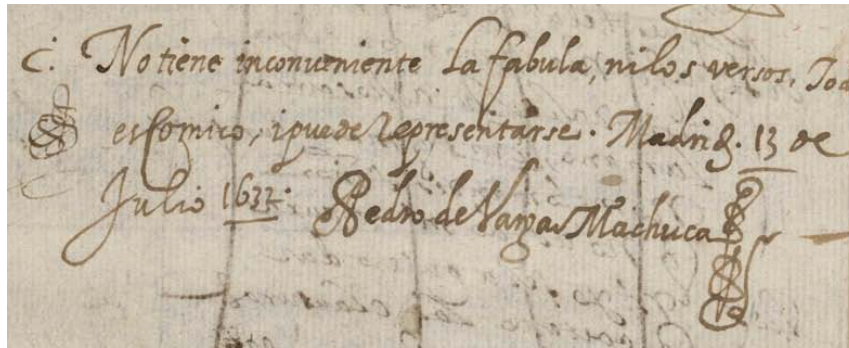 C. No tiene inconueniente La fabula, ni los versos. Tod
es Comico, i puede Representarse. Madrid. 13 de
Julio
Pedro de Vargas Machuca